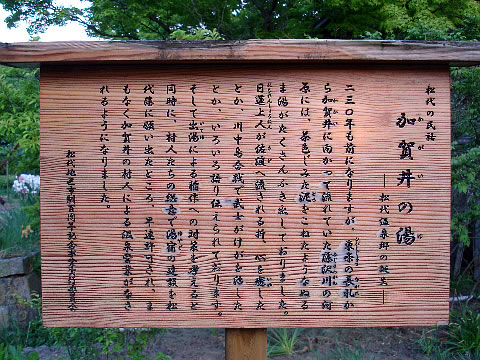 松代の民話
加賀井の湯
―松代温泉郷の發芙―
二三〇年も前になりますが、東条の長礼か
ら加賀井に向かって流れていた藤沢川の河
原には、茶色じみた泥をこねたようなぬる
ま湯がたくさんふき出しておりました。
日蓮上人が佐渡へ流された折、心を癒した
とか、川中島合戦で武士がけがを治した
とか、いろいろ語り伝えられております。
そして出湯による稲作への対策を考えると
同時に、村人たちの総意で湯宿の建設を松
代藩に願い出たところ、早速許可され、ま
もなく加賀井の村人による温泉営業がなさ
れるようになりました。